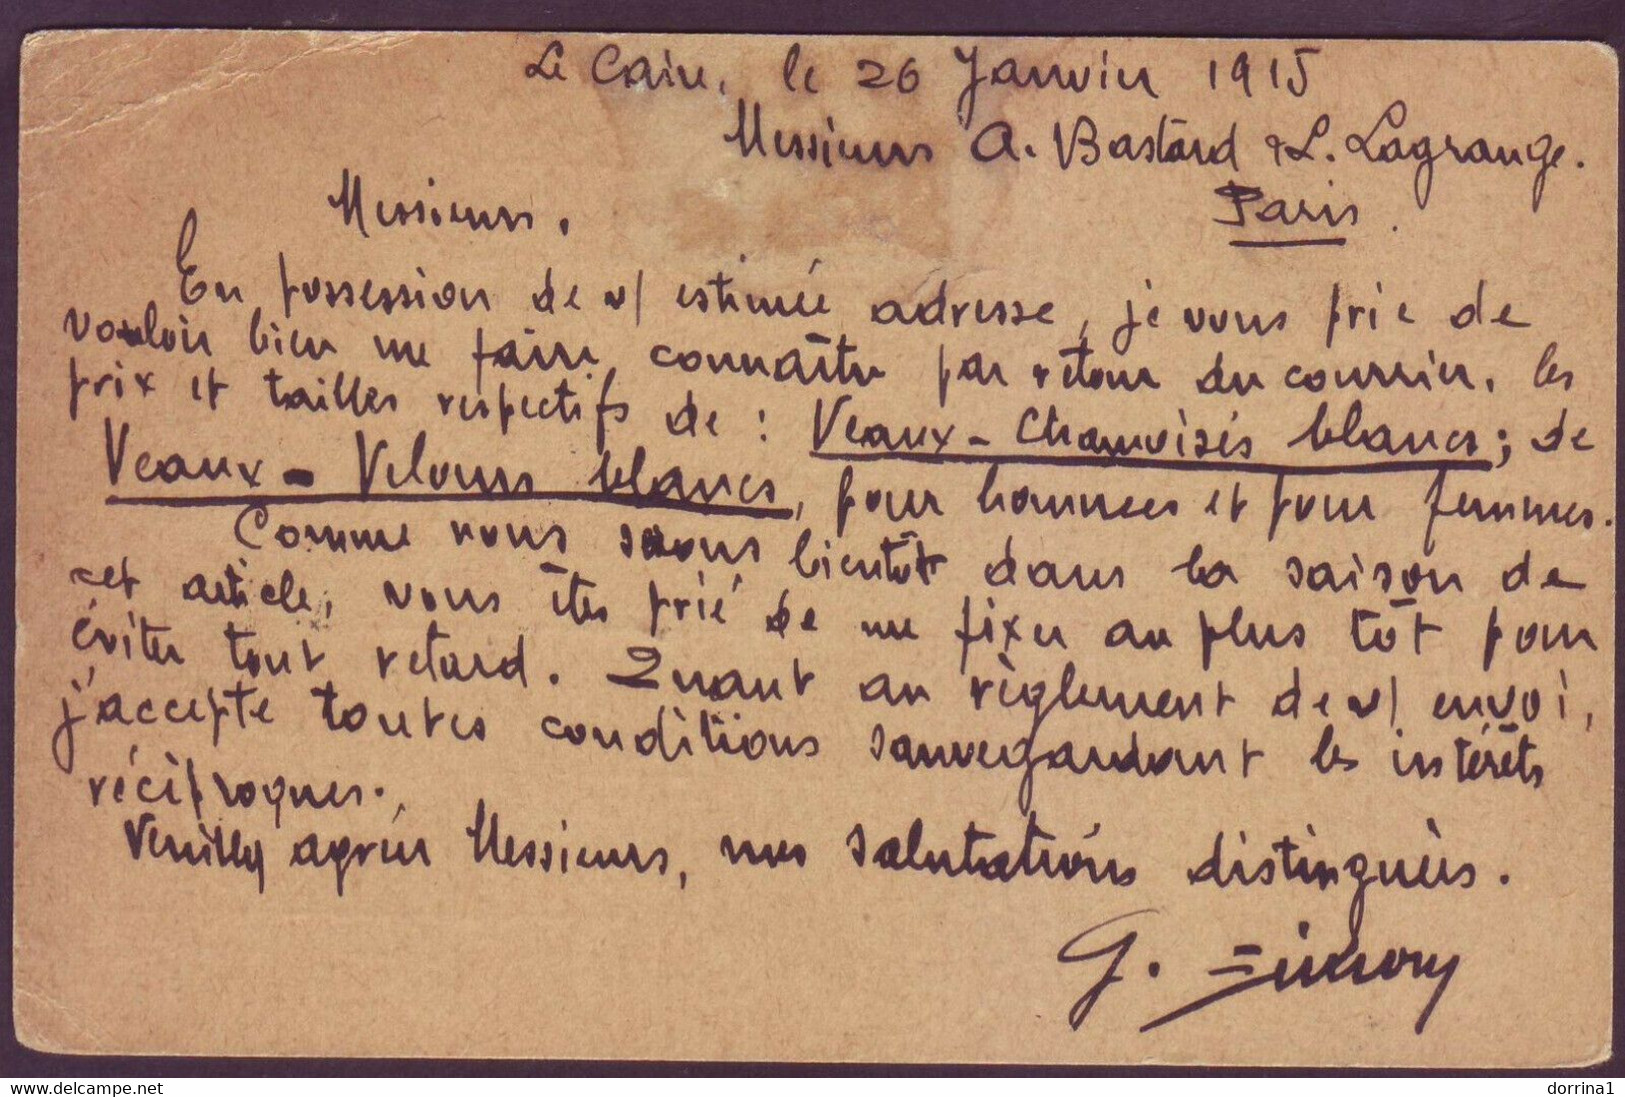 Le Caire, le 26 Janvier 1915
Messieurs A. Bastard & L. Lagrange.
Paris.
Messieurs.
En possession de v/ estimée adresse, je vous prie de
vouloir bien me faire connaître par retour du courrier, les
prix et tailles respectifs de : Veaux-Chamoisés blancs ; de
Veaux-Velours blancs, pour hommes et pour femmes.
Comme nous serons bientôt dans la saison de
cet article, vous êtes prié de me fixer au plus tôt pour
éviter tout retard. Quant au règlement de v/ envoi,
j'accepte toutes conditions sauvegardant les intérêts
réciproques.
Veuillez agréer Messieurs, mes salutations distinguées.
G.
www.delcampe.net
dorrina1